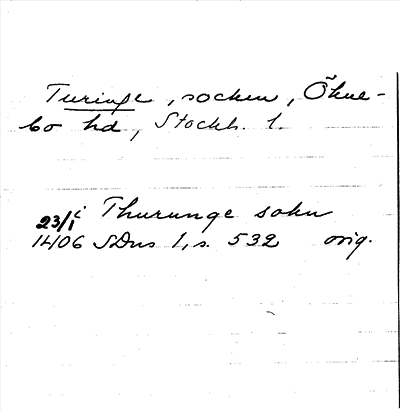 Turinge, socken, Öhne-
bo hd, Stockh. l.
i Thurunge sokn
23/1
1406 SDns 1, s. 532 orig.